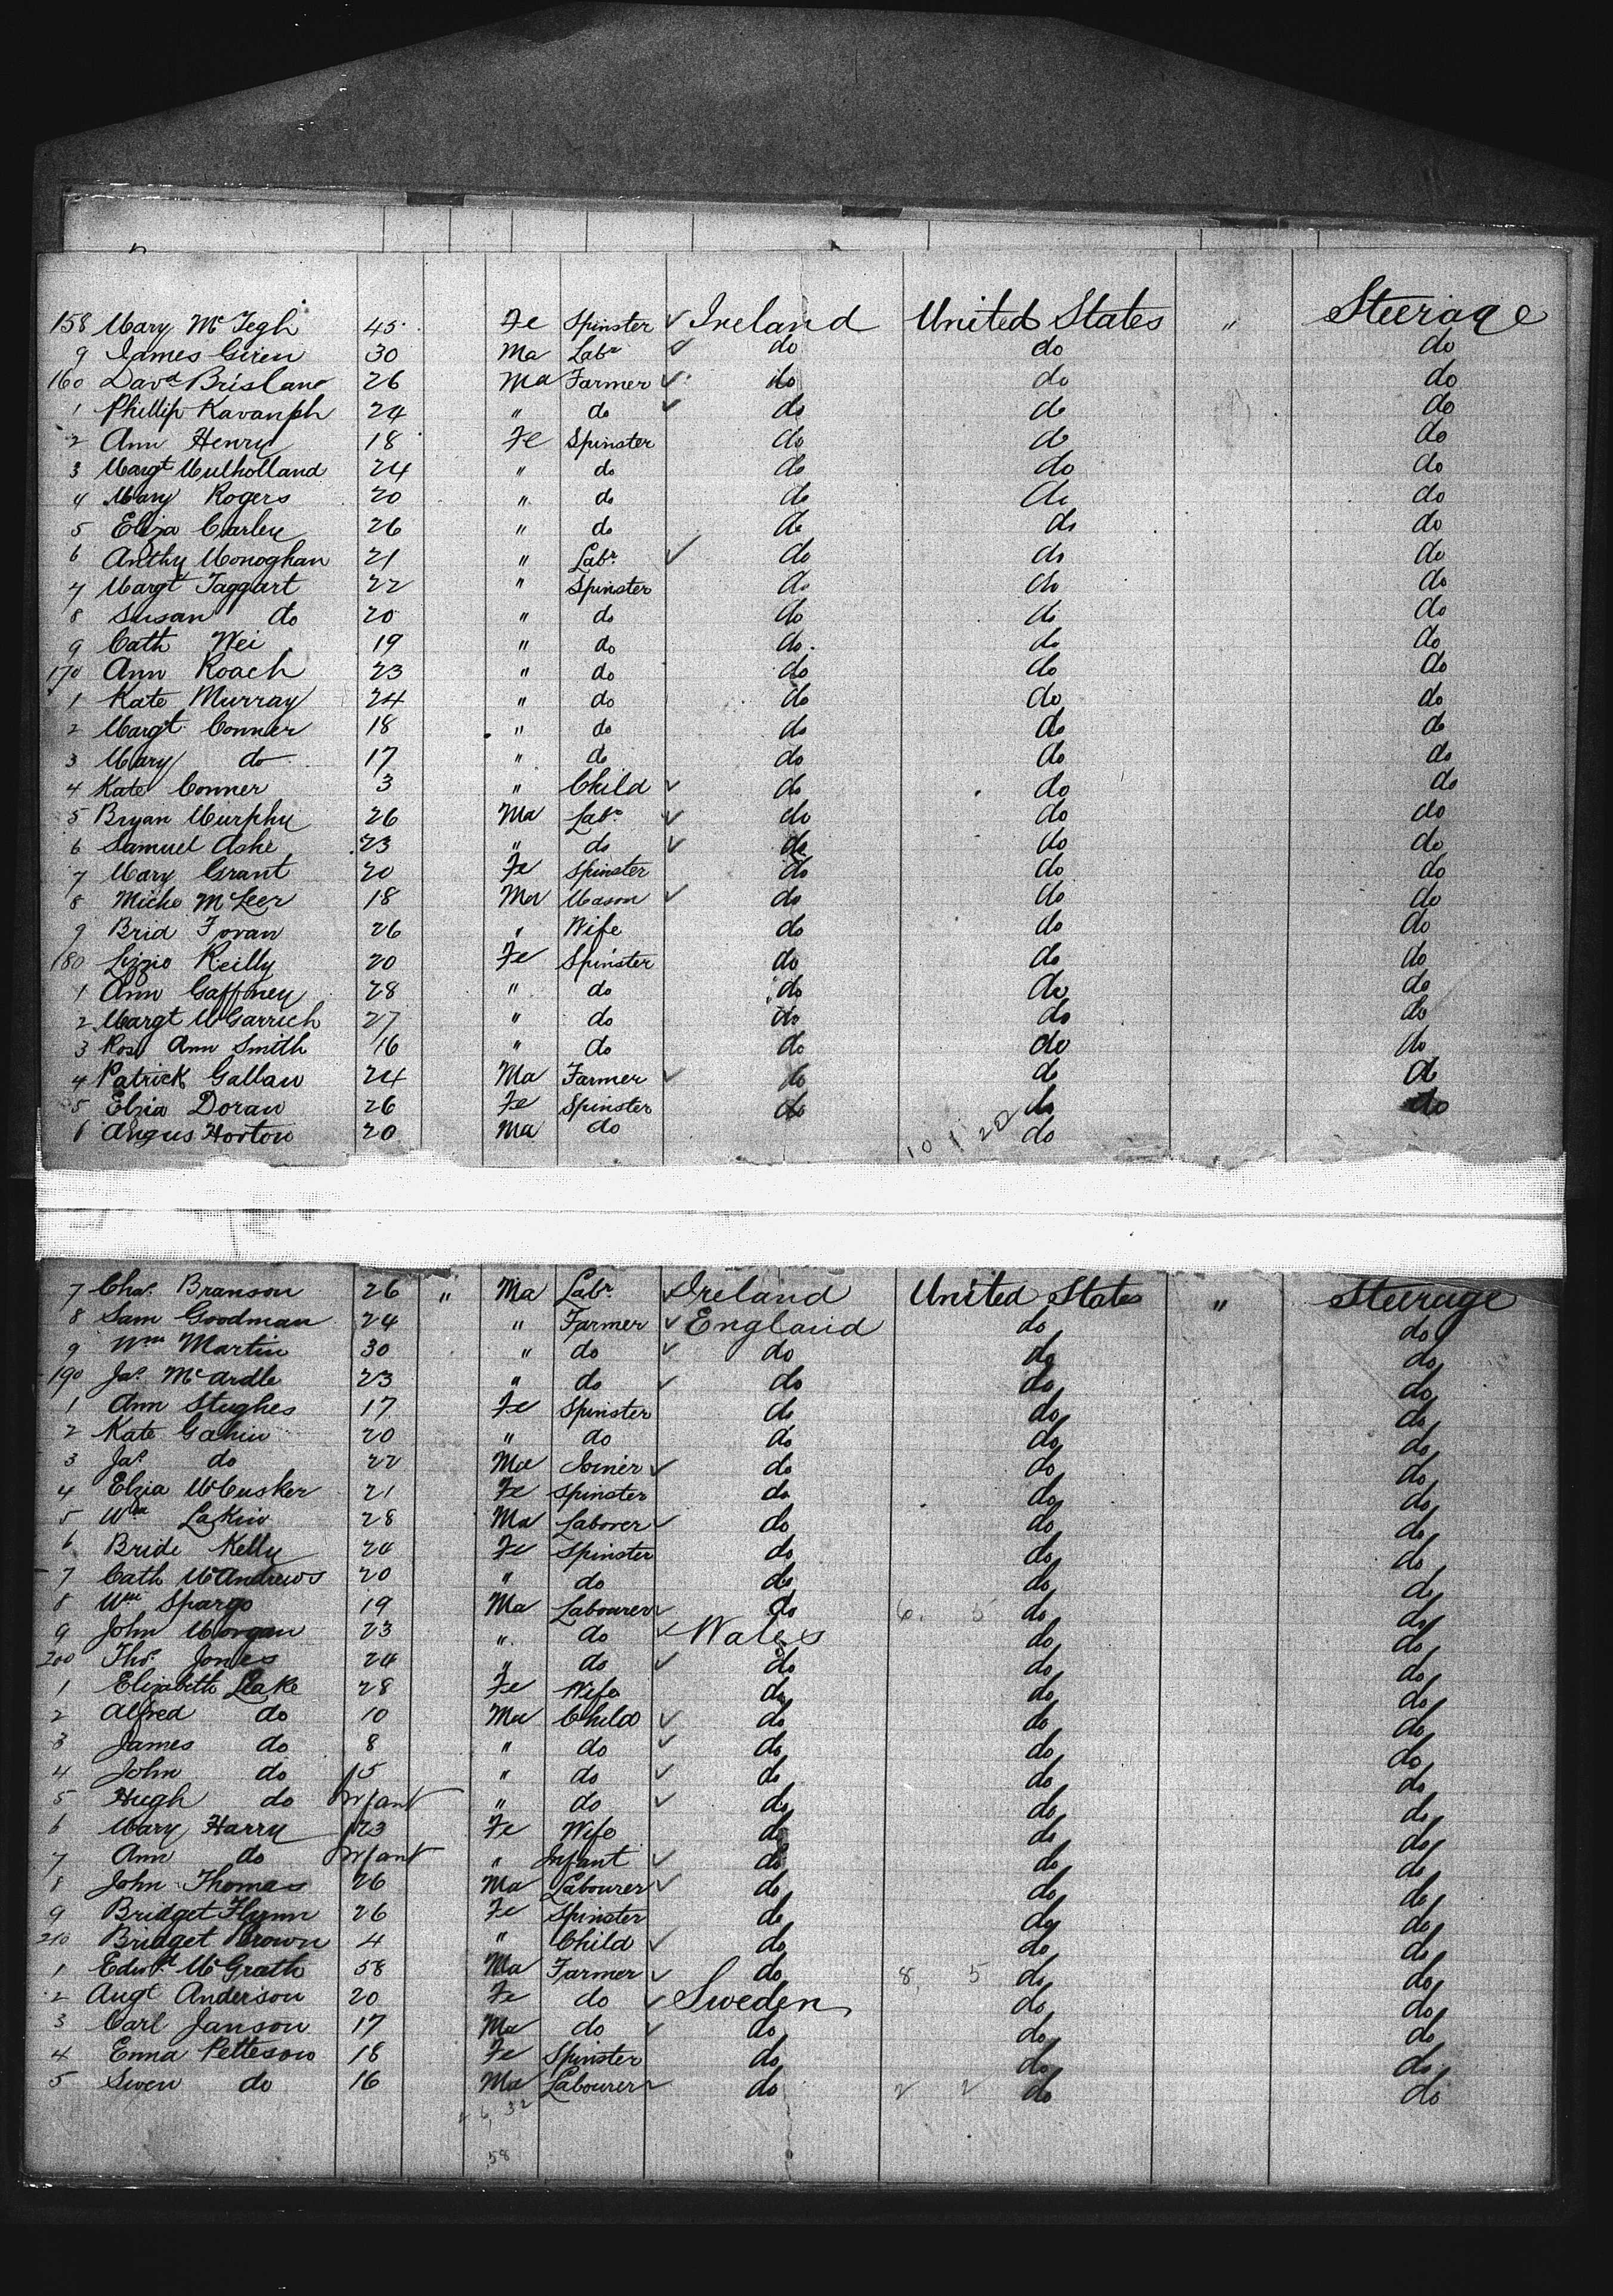 158 Mary McTegh 45 Fe Spinster ✓ Ireland United States " Steerage
9 James Giren 30 Ma Labr ✓ do do do
160 Davd Brislane 26 Ma Farmer ✓ do do do
1 Phillip Kavanph 24 " do ✓ do do do
2 Ann Henry 18 Fe Spinster do do do
3 Margt Mulholland 24 " do do do do
4 Mary Rogers 20 " do do do do
5 Eliza Carley 26 " do do do do
6 Anthy Monoghan 21 " Labr ✓ do do do
7 Margt Taggart 22 " Spinster do do do
8 Susan do 20 " do do do do
9 Cath Wei 19 " do do do do
170 Ann Roach 23 " do do do do
1 Kate Murray 24 " do do do do
2 Margt Conner 18 " do do do do
3 Mary do 17 " do do do do
4 Kate Conner 3 " Child ✓ do do do
5 Bryan Murphy 26 Ma Labr ✓ do do do
6 Samuel Ashe 23 " do ✓ do do do
7 Mary Grant 20 Fe Spinster do do do
8 Micho McLeer 18 Ma Mason ✓ do do do
9 Brid Foran 26 " Wife do do do
180 Lizzie Reilly 20 Fe Spinster do do do
1 Ann Gaffney 28 " do do do do
2 Margt McGarrich 27 " do do do do
3 Rose Ann Smith 16 " do do do do
4 Patrick Gallan 24 Ma Farmer ✓ do do do
5 Elzia Doran 26 Fe Spinster do do do
6 Angus Horton 20 Ma do do
7 Chas. Branson 26 " Ma Labr ✓ Ireland United States " Steerage
8 Sam Goodman 24 " Farmer ✓ England do do
9 Wm Martin 30 " do ✓ do do do
190 Jas McArdle 23 " do ✓ do do do
1 Ann Stughes 17 Fe Spinster do do do
2 Kate Gahin 20 " do do do do
3 Jas do 22 Ma Joiner ✓ do do do
4 Elzia McCusker 21 Fe Spinster do do do
5 Wm Lakin 28 Ma Laborer ✓ do do do
6 Bride Kelly 24 Fe Spinster do do do
7 Cath McAndrews 20 " do do do do
8 Wm Spargo 19 Ma Labourer ✓ do 6. 5 do do
9 John Morgan 23 " do ✓ Wales do do
200 Thos Jones 24 " do ✓ do do do
1 Elizabeth Leake 28 Fe Wife do do do
2 Alfred do 10 Ma Child ✓ do do do
3 James do 8 " do ✓ do do do
4 John do 5 " do ✓ do do do
5 Hugh do Infant " do ✓ do do do
6 Mary Harry 23 Fe Wife do do do
7 Ann do Infant " Infant ✓ do do do
8 John Thomas 26 Ma Labourer ✓ do do do
9 Bridget Flynn 26 Fe Spinster do do do
210 Bridget Brown 4 " Child ✓ do do do
1 Edwd McGrath 58 Ma Farmer ✓ do 8 5 do do
2 Augt Anderson 20 Fe do ✓ Sweden do do
3 Carl Janson 17 Ma do ✓ do do do
4 Enna Petteson 18 Fe Spinster do do do
5 Swen do 16 Ma Labourer ✓ do 2 2 do do
26, 32
58